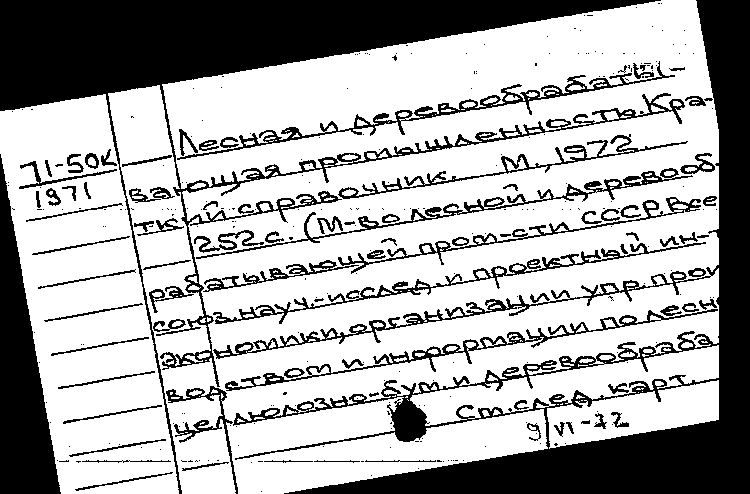 Лесная и деревообрабаты-
71-50к
1971
вающая промышленность. Кра-
ткий справочник. М., 1972.
252 с. (М-во лесной и деревооб-
рабатывающей пром-сти СССР. Все
союз. науч.-исслед. и проектный ин-т
экономики, организации упр. прои
водством и информации по лесн
целлюлозно-бум. и деревообраба
См. след. карт.
9/VI-72